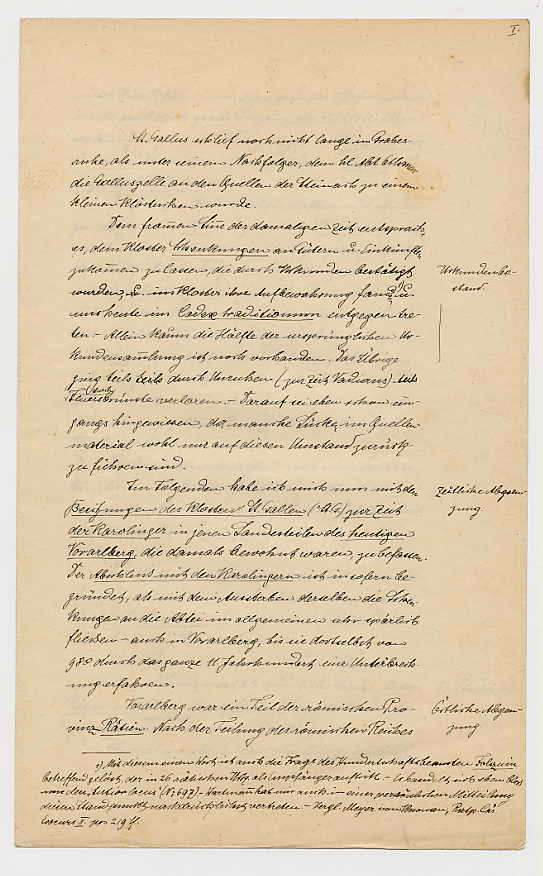 I.
St. Gallus schlief noch nicht lange in Grabes-
ruhe, als unter seinem Nachfolger, dem hl. Abt Othmar
die Galluszelle an den Quellen der Steinach zu einem
kleinen Klösterchen wurde.
Dem frommen Sinn der damaligen Zeit entsprach
es, dem Kloster Schenkungen an Gütern u. Einkünften
zukommen zu lassen, die durch Urkunden bestätigt
wurden, u. im Kloster ihre Aufbewahrung fanden u.
uns heute im Codex traditionum entgegen tre-
ten. - Allein kaum die Hälfte der ursprünglichen Ur-
kundensammlung ist noch vorhanden. Das Übrige
ging teils durch Unruhen (zur Zeit Vadians) teils
durch
Feuersbrünste verloren. - Darauf sei eben schon ein-
gangs hingewiesen, da manche Lücke im Quellen-
material wohl nur auf diesen Umstand zurück
zu führen sind.
Im Folgenden habe ich mich nun mit den
Besitzungen des Klosters St. Gallen zur Zeit
der Karolinger in jenen Landesteilen des heutigen
Vorarlberg, die damals bewohnt waren, zu befassen.
Der Abschluss mit den Karolingern ist insofern be-
gründet, als mit dem Aussterben derselben die Schen-
kungen an die Abtei im allgemeinen sehr spärlich
fließen - auch in Vorarlberg, bis sie dortselbst von
980 durch das ganze 11. Jahrhundert eine Unterbrech-
ung erfahren.
Vorarlberg war ein Teil der römischen Pro-
vinz Rätien. Nach der Teilung des römischen Reiches
Urkundenbe-
stand.
Zeitliche Abgren-
zung.
Örtliche Abgren-
zung
Mit diesem einen Wort ist auch die Frage des Hundertschaftsbeamten Folquin
betreffend gelöst, der in 26 rätischen als Empfänger auftritt. -
(N: 697) - Hartmann hat mir auch in einer persönlichen Mitteilung
diesen Standpunkt vertreten. - Vergl. Meyer von Knonau,
II pag 219 ff.